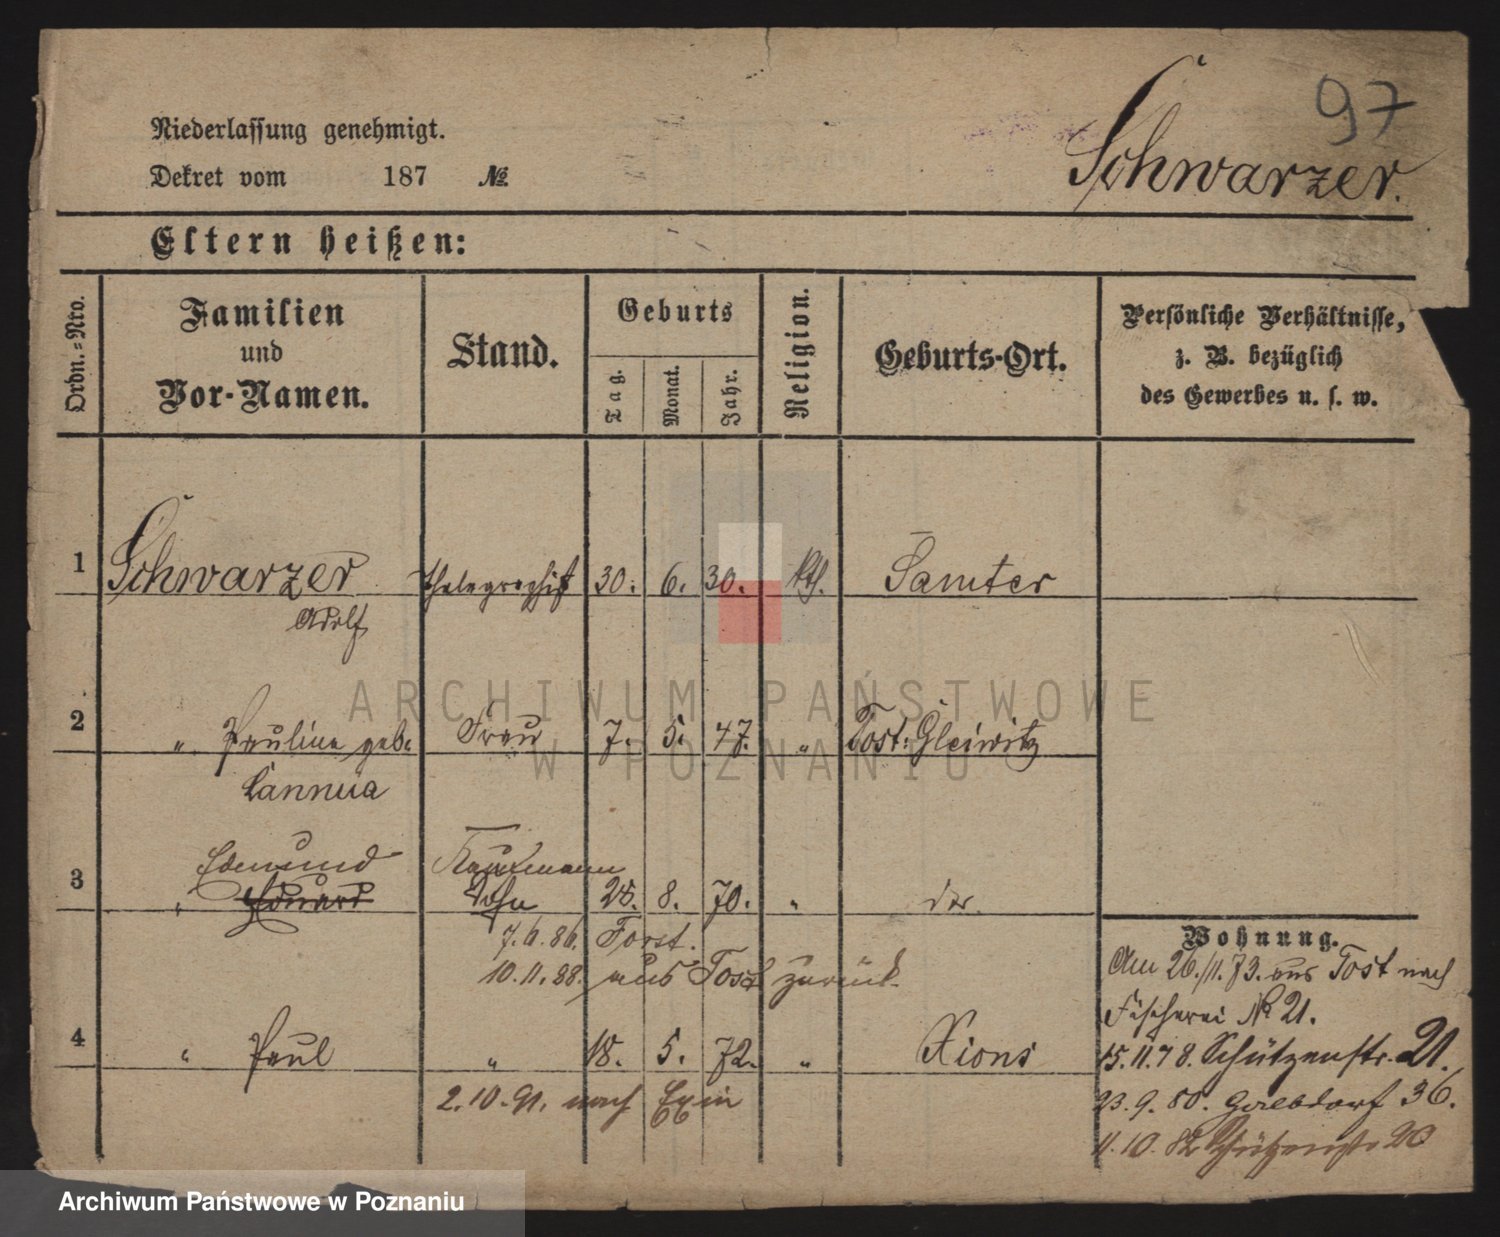 97
Niederlassung genehmigt.
Schwarzer.
Dekret vom 187 №
Eltern heißen:
Ordn.-Nro.
Familien und Vor-Namen.
Stand.
Geburts
Tag.
Monat.
Jahr.
Religion.
Geburts-Ort.
Persönliche Verhältnisse,
z. B. bezüglich
des Gewerbes u. s. w.
1 Schwarzer Thelegraphist 30. 6. 30. kth. Samter
Adolf
2 " Pauline geb. Frau 7. 5. 47. " Tost: Gleiwitz
Cannua
Edmund Kaufmann
3 " Eduard Sohn 28. 8. 70. "
7.6.86. Forst.
10.11.88. aus Tost zurück
4 " Paul " 18. 5. 72. " Xions
2.10.91. nach Exin
Wohnung.
Am 26./11.73. aus Tost nach
Fischerei № 21.
15.11.78. Schützenstr. 21.
23.9.80. 36.
11.10.82 Schützenstr 20
ARCHIWUM PAŃSTWOWE
W POZNANIU
Archiwum Państwowe w Poznaniu